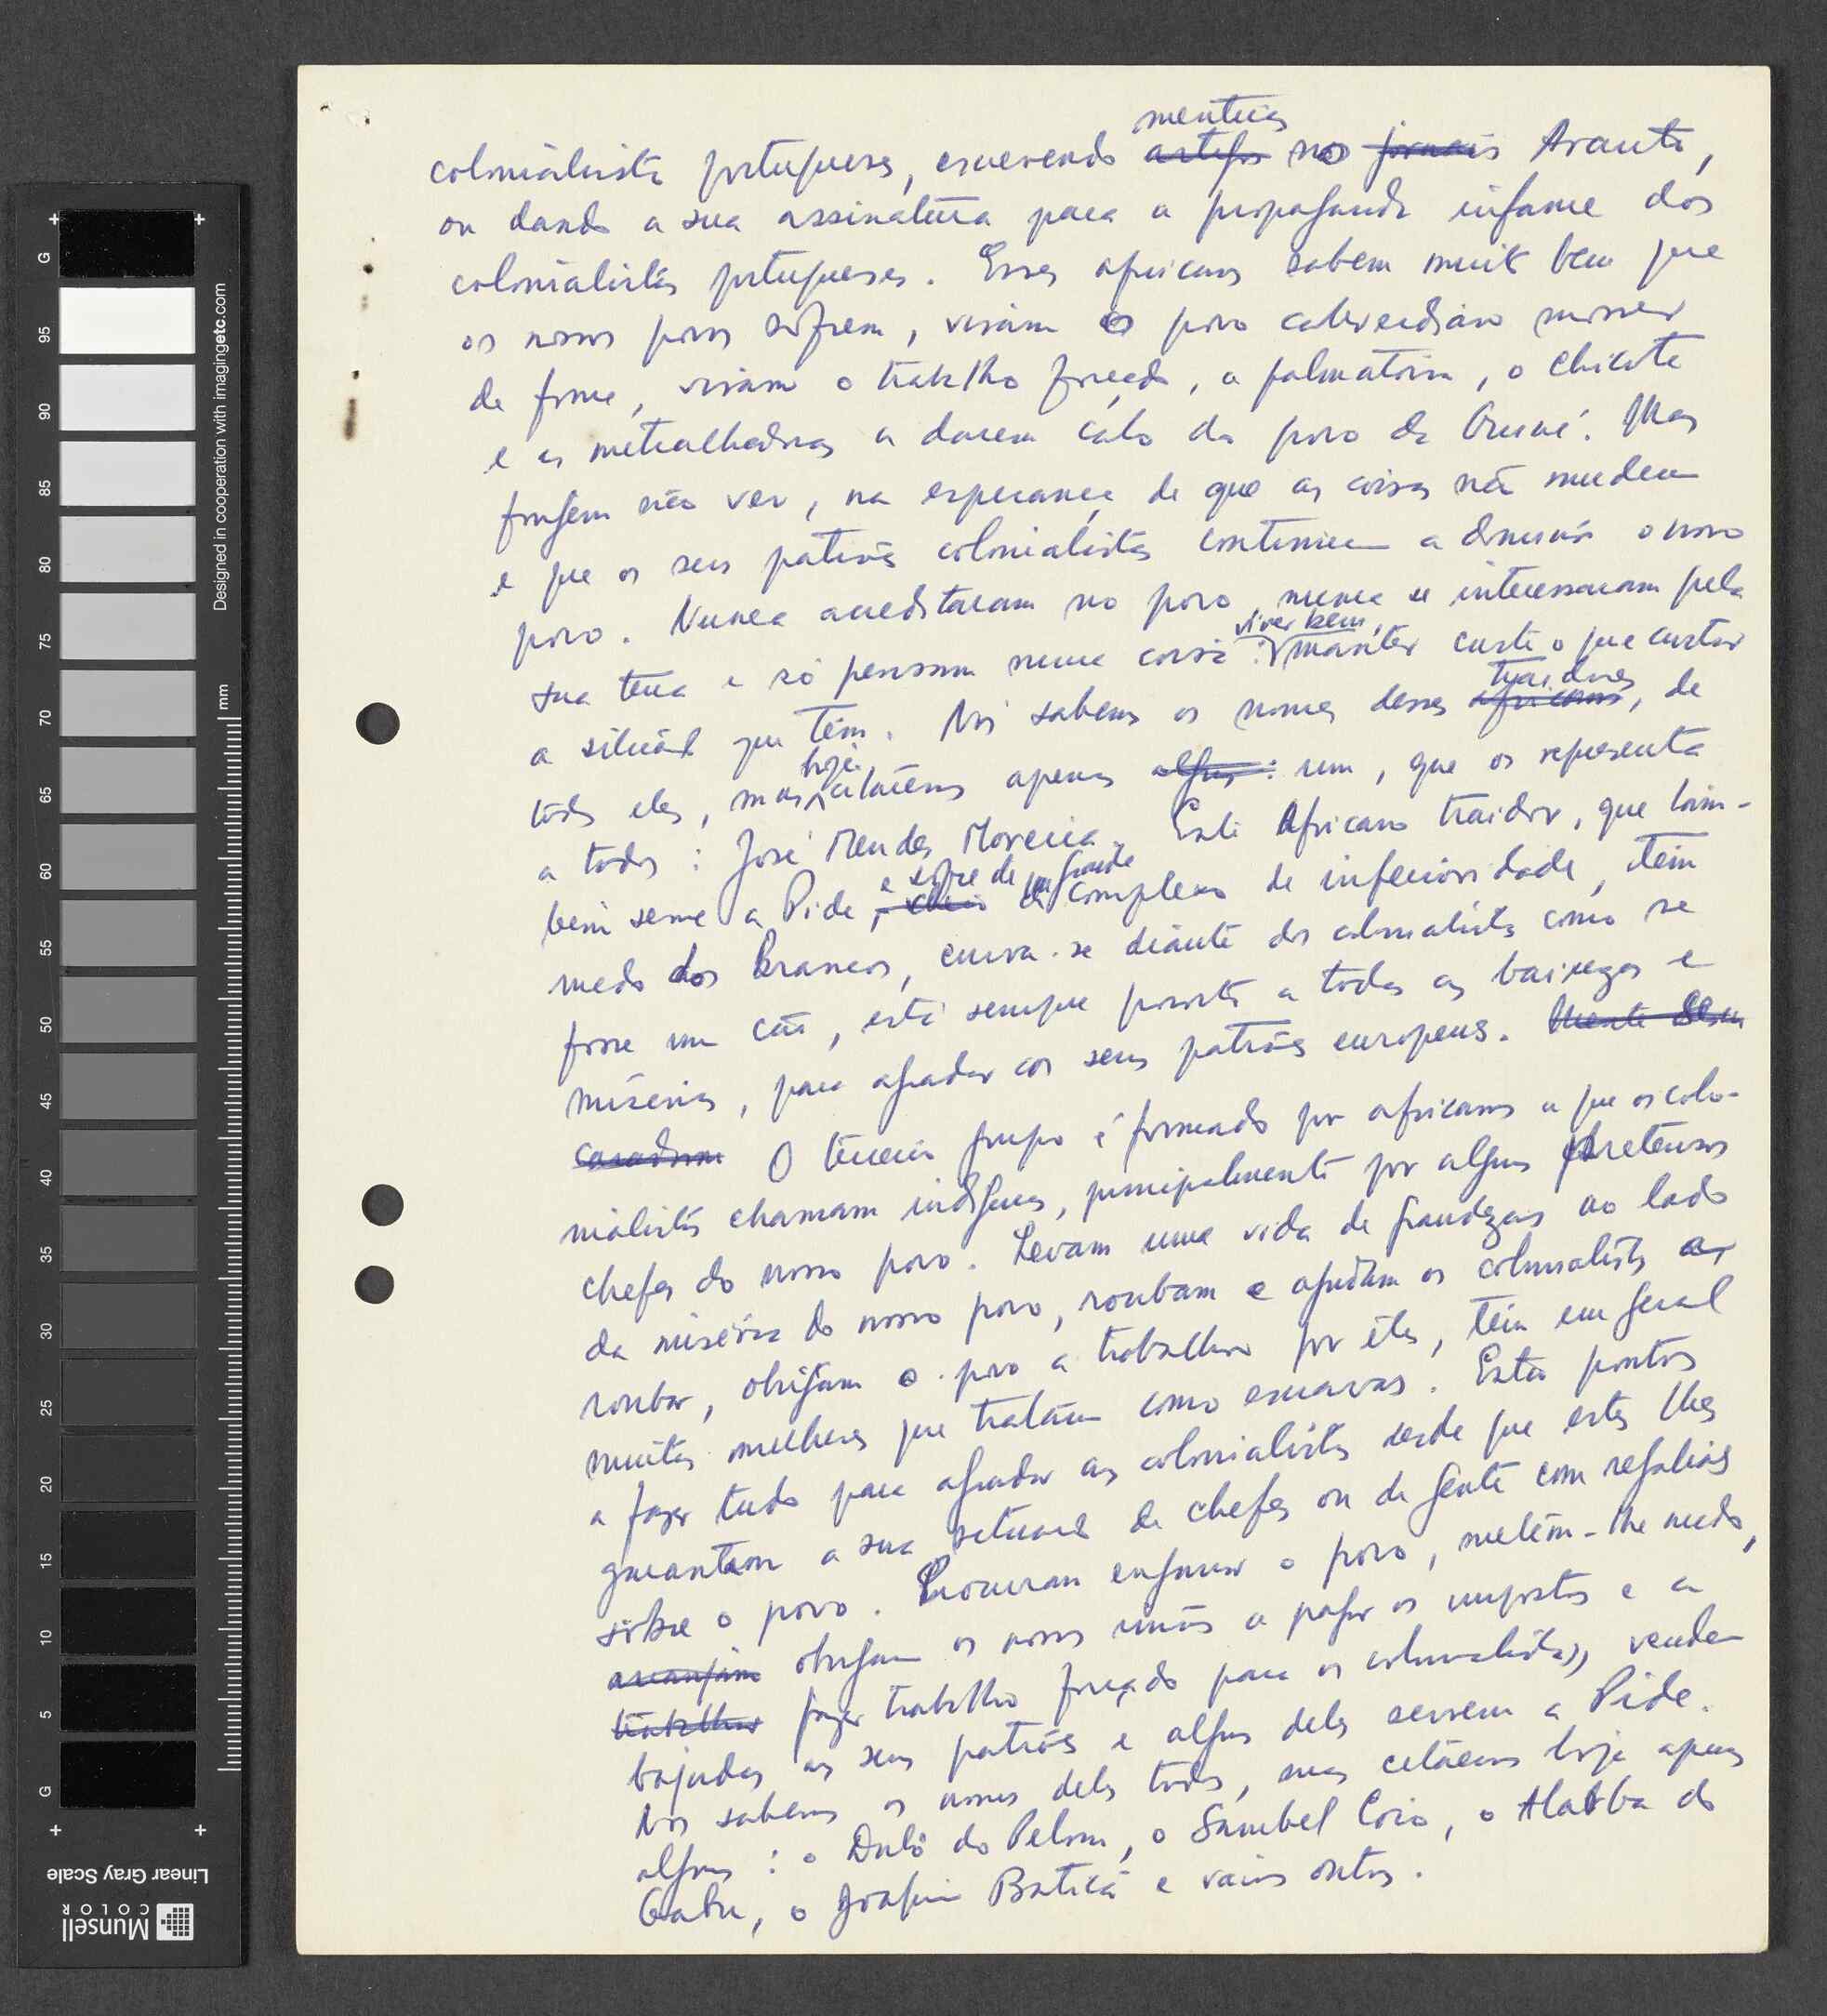 mentiras
colonialista português, escrevendo artigos no jornais Arauto,
ou dando a sua assinatura para a propaganda infame dos
colonialistas portugueses. Esses africanos sabem muito bem que
os nossos povos sofrem, viram o povo caboverdiano morrer
de fome, viram o trabalho forçado, a palmatória, o chicote
e as metralhadoras a darem cabo do povo da Guiné. Mas
fingem não ver, na esperança de que as coisas não mudem
e que os seus patrões colonialistas continuem a dominar o nosso
povo. Nunca acreditaram no povo, nunca se interessaram pela
viver bem,
sua terra e só pensam numa coisa: manter custe o que custar
traidores
a situação que têm. Nós sabemos os nomes desses africanos, de
hoje
todos eles, mas citaremos apenas alguns: um, que os representa
a todos: José Mendes Moreira. Este Africano traidor, que tam-
e sofre de um grande
bém serve a Pide, cheio de complexo de inferioridade, tem
medo dos Brancos, curva-se diante dos colonialistas como se
fosse um cão, está sempre pronto a todas as baixezas e
misérias, para agradar aos seus patrões europeus.
O terceiro grupo é formado por africanos a que os colo-
nialistas chamam indígenas, principalmente por alguns pretensos
chefes do nosso povo. Levam uma vida de grandezas ao lado
da miséria do nosso povo, roubam e ajudam os colonialistas a
roubar, obrigam o povo a trabalhar por êles, têm em geral
muitas mulheres que tratam como escravas. Estão prontos
a fazer tudo para agradar aos colonialistas desde que estes lhes
garantam a sua situação de chefes ou de gente com regalias
sôbre o povo. Procuram enganar o povo, metem-lhe medo,
arranjam obrigam os nossos irmãos a pagar os impostos e a
trabalhar fazer trabalho forçado para os colonialistas, vendem
bajudas aos seus patrões e alguns deles servem a Pide.
Nós sabemos os nomes deles todos, mas citaremos hoje apenas
alguns: o Duló do Pelom, o Sambel Coio, o Alabba do
Gabu, o Joaquim Baticã e vários outros.